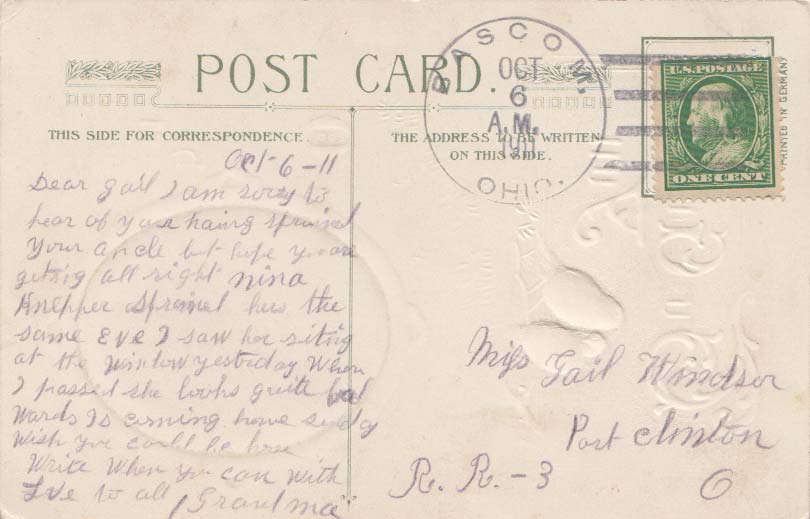 POST CARD.
BASCOM.
OCT
6
A.M.
1911
OHIO.
U.S. POSTAGE
ONE CENT
PRINTED IN GERMANY
THIS SIDE FOR CORRESPONDENCE.
THE ADDRESS TO BE WRITTEN
ON THIS SIDE.
Oct-6-11
Dear Gail I am sorry to
hear of your haing spraind
your ancle but hope you are
getting all right nina
Knepper spraind hers the
same Eve I saw her siting
at the window yesterday when
I passed she looks quite bad
Wards Is coming home sunday
Wish you could be here
Write when you can with
Love to all Grandma
Miss Gail Windsor
Port Clinton
R. R. - 3
O